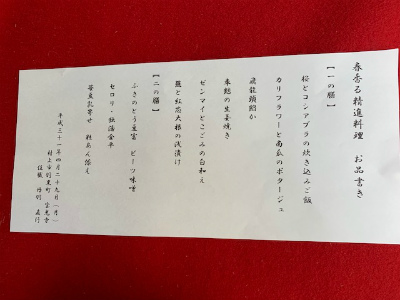 春香る精進料理　お品書き
【一の膳】
桜とコシアブラの炊き込みご飯
カリフラワーと南瓜のポタージュ
飛龍頭餡か
車麩の生姜焼き
ゼンマイとこごみの白和え
蕪と紅芯大根の浅漬け
【二の膳】
ふきのとう豆富　ビーツ味噌
セロリ・独活金平
苺豆乳寄せ　餡あん添え
平成三十一年四月二十九日（月）
村上市羽黒町　宝光寺
住職